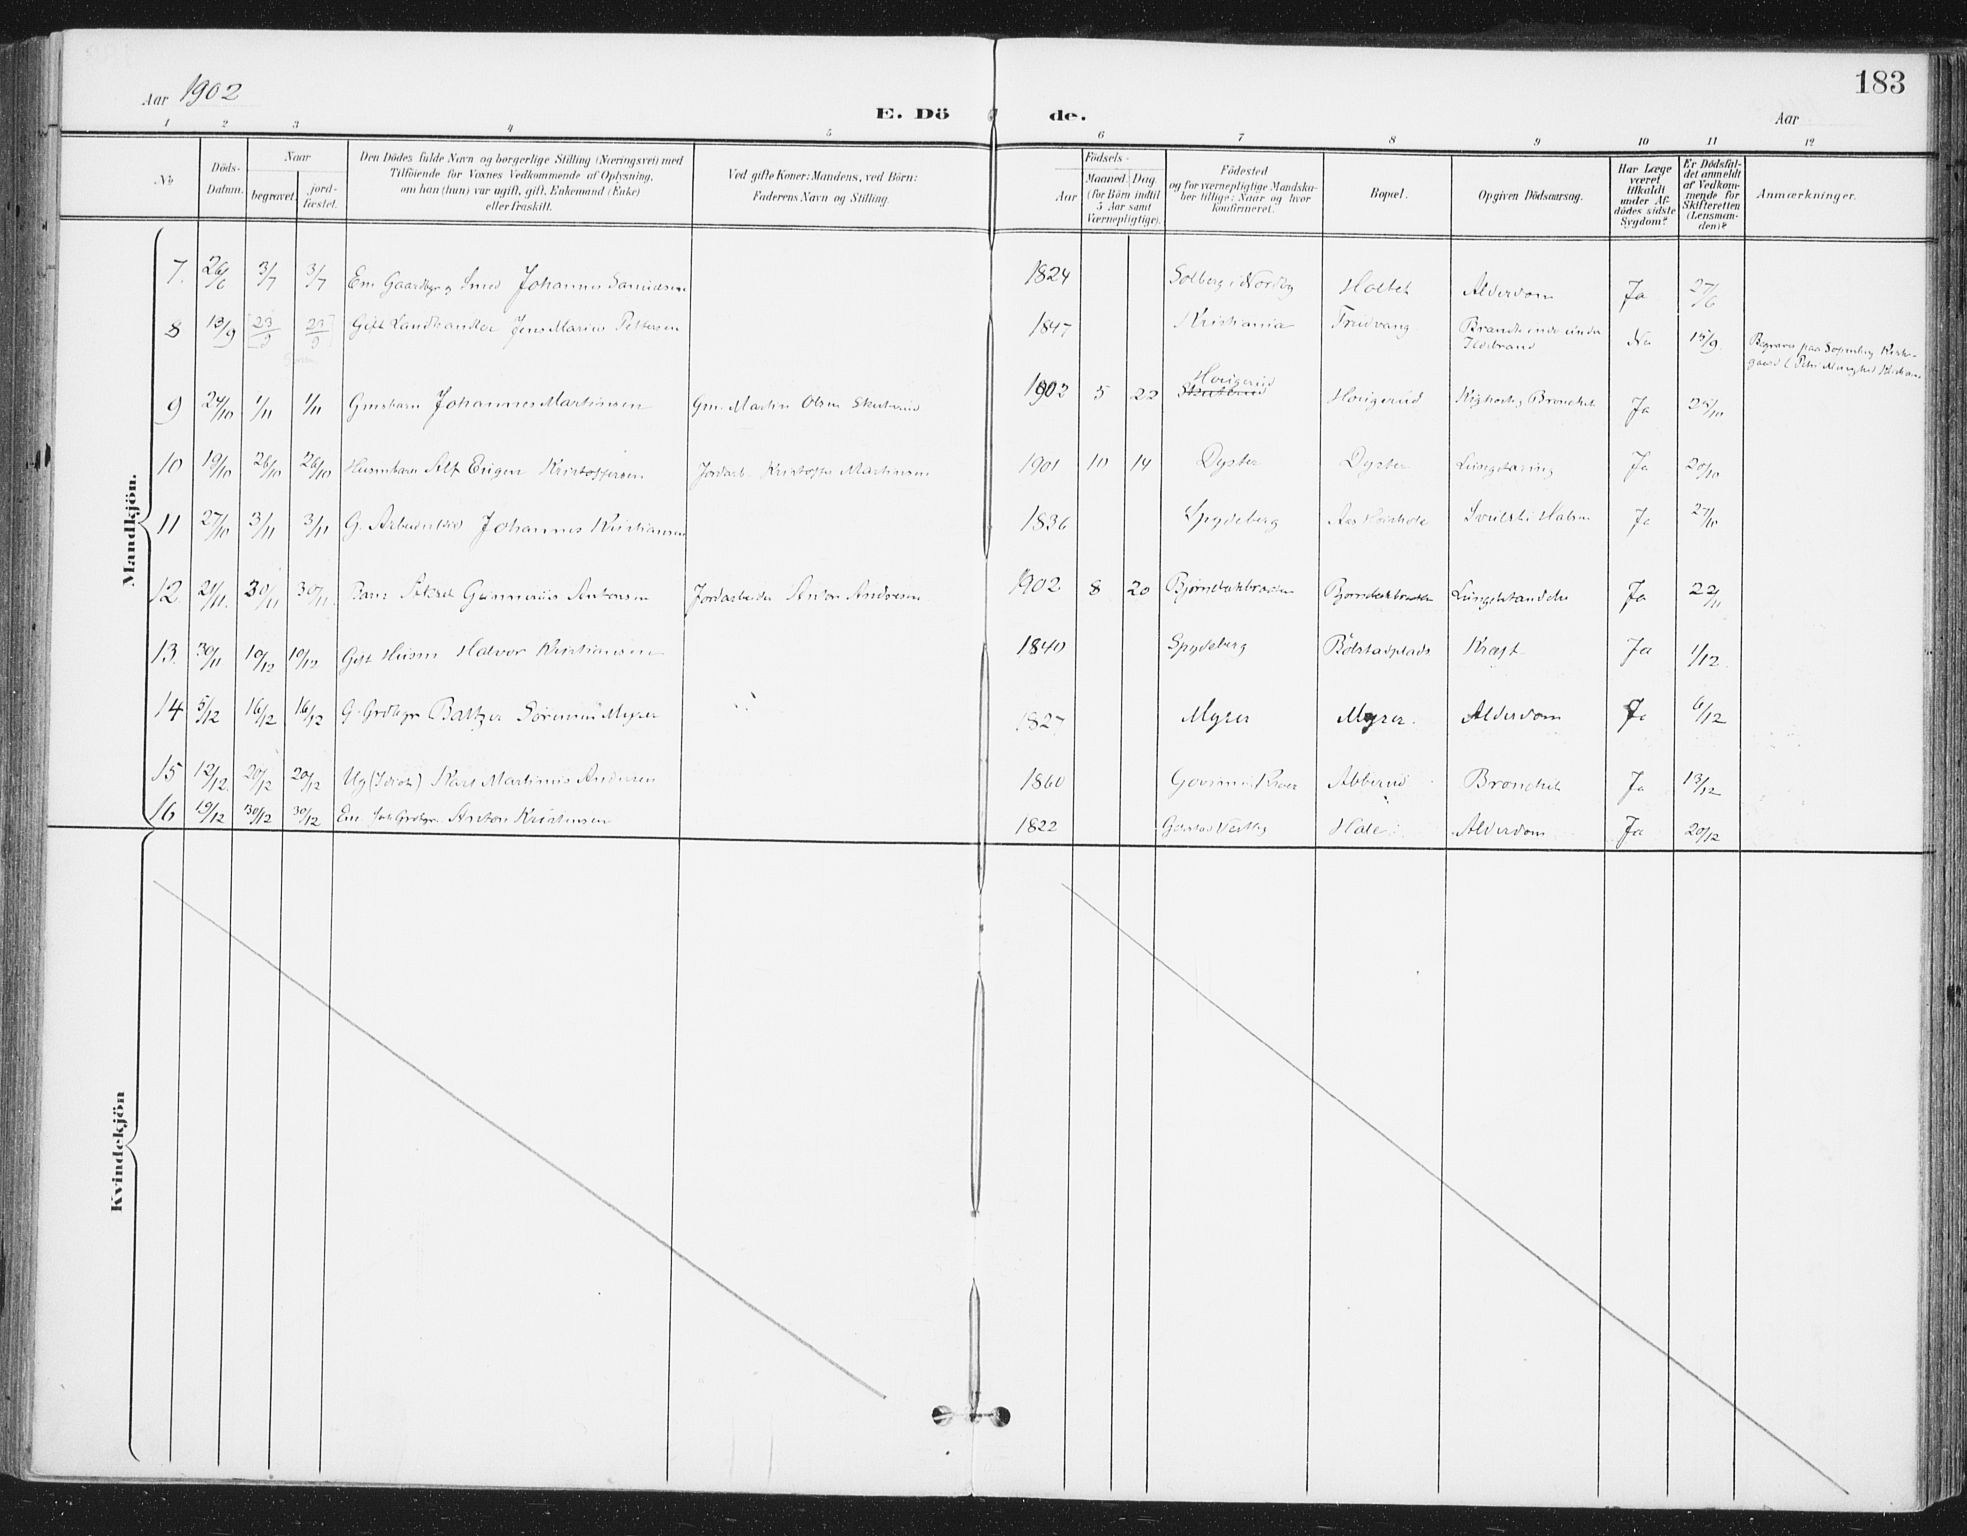 183
Aar 1902
E. Dö de.
Aar
1 2 3 4 5 6 7 8 9 10 11 12
No
Döds-Datum.
Naar
begravet.
jord-fæstet.
Den Dödes fulde Navn og borgerlige Stilling (Næringsvei) med
Tilföiende for Voxnes Vedkommende af Oplysning,
om han (hun) var ugift, gift, Enkemand (Enke)
eller fraskilt.
Ved gifte Koner: Mandens, ved Börn:
Faderens Navn og Stilling.
Födsels-
Aar
Maaned. Dag.
(for Börn indtil
5 Aar samt
Værnepligtige).
Födested
og for værnepligtige Mandska-
ber tillige: Naar og hvor
konfirmeret.
Bopæl.
Opgiven Dödsaarsag.
Har Læge
været
tilkaldt
under Af-
dödes sidste
Sygdom?
Er Dödsfal-
det anmeldt
af Vedkom-
mende for
Skifteretten
(Lensman-
den)?
Anmærkninger.
Mandkjön.
7. 26/6 3/7 3/7 Em Gaardbgr og Smed Johannes Samuelsen 1824 Solberg i Nordby Holtet Alderdom Ja 27/6
8 13/9 [23/9 23/9] Gift Landhandler Jens Marius Pettersen 1847 Kristiania Fredvang Nei 15/9
9 24/10 1/11 1/11 Gmsbarn Johannes Martinsen Gm. Martin Olsen Skuterud 1902 5 22 Hougerud Hougerud Kighoste Bronchit Ja 25/10
10 19/10 26/10 26/10 Husmbarn Alf Eugen Kristoffersen Jordarb. Kristoffer Martinsen 1901 10 14 Dyster Dyster Ja 20/10
11 27/10 3/11 3/11 G. Arbeidsmd Johannes Kristiansen 1836 Spydeberg Aas Høiskole Ja 27/10
12. 21/11. 30/11 30/11. Barn Gunnerius Antonsen Jordarbeider Anton Andresen 1902 8 20 Bjørnebekbraaten Bjørnebekbraaten Ja 22/11
13. 30/11 10/12 10/12 Gift Husm Halvor Kristiansen 1840 Spydeberg Bølstadplads Kræft Ja 1/12.
14 5/12 16/12 16/12 G. Grdbgr Baltzer Sørensen Myrer 1827 Myrer Myrer. Alderdom Ja 6/12
15 12/12. 20/12 20/12 Ug (Idiot) Karl Martinius Andersen 1860 Kroer Abberud Bronchit Ja 13/12
16 19/12 30/12 30/12 Em Anton Kristensen 1822 Vestby Alderdom Ja 20/12
Kvindekjön